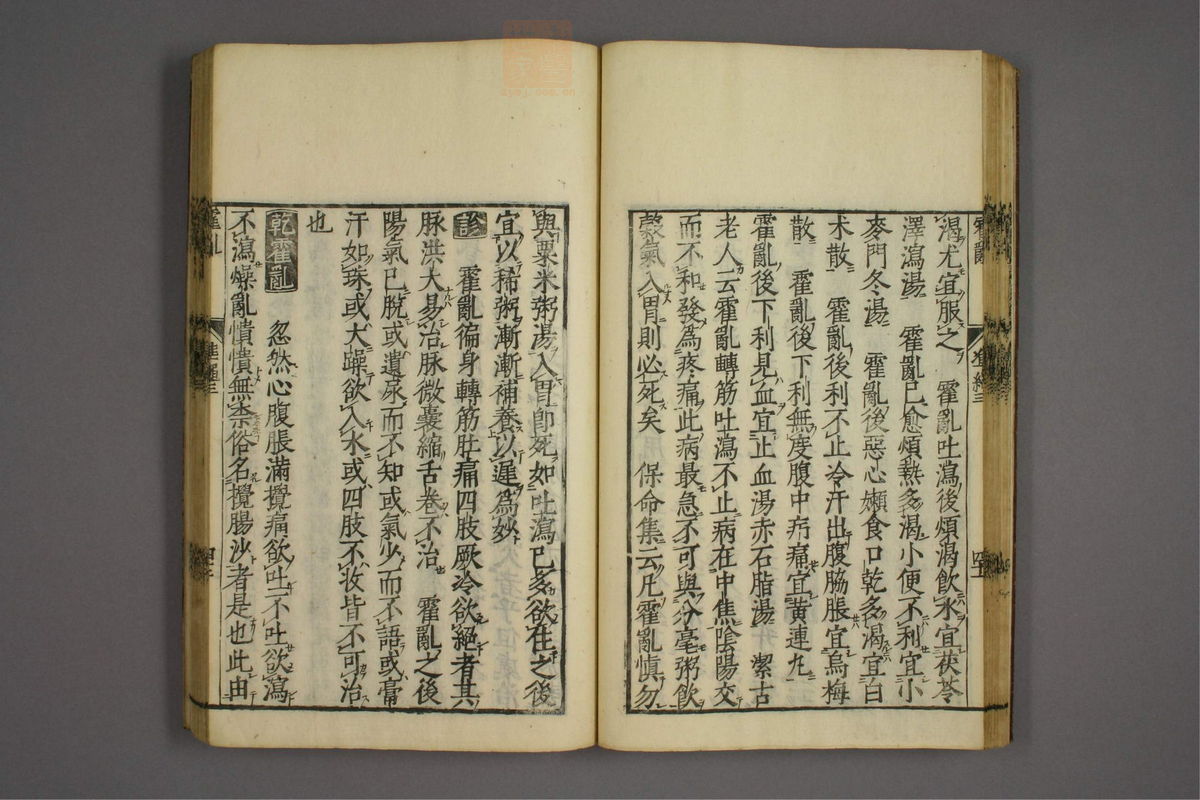 渴尤宜服之　霍亂吐瀉後煩渴飲水宜茯苓
澤瀉湯　霍亂已愈煩熱多渴小便不利宜小
麥門冬湯　霍亂後惡心嬾食口乾多渴宜白
术散　霍亂後利不止冷汗出腹脇脹宜烏梅
散　霍亂後下利無度腹中㽱痛宜黃連丸
霍亂後下利見血宜止血湯赤石脂湯　潔古
老人云霍亂轉筋吐瀉不止病在中焦陰陽交
而不和發爲疼痛此病最急不可與分毫粥飲
榖氣入胃則必死矣　保命集云凡霍亂慎勿
與粟米粥湯入胃即死如吐瀉已多欲住之後
宜以稀粥漸漸補養以遲爲妙
診　霍亂徧身轉筋肚痛四肢厥冷欲絕者其
脉洪大易治脉微囊縮舌卷不治　霍亂之後
陽氣已脫或遺尿而不知或氣少而不語或膏
汗如珠或大躁欲入水或四肢不收皆不可治
也
乾霍亂　忽然心腹脹滿攪痛欲吐不吐欲瀉
不瀉燥亂憒憒無柰俗名攪腸沙者是也此由
霍亂